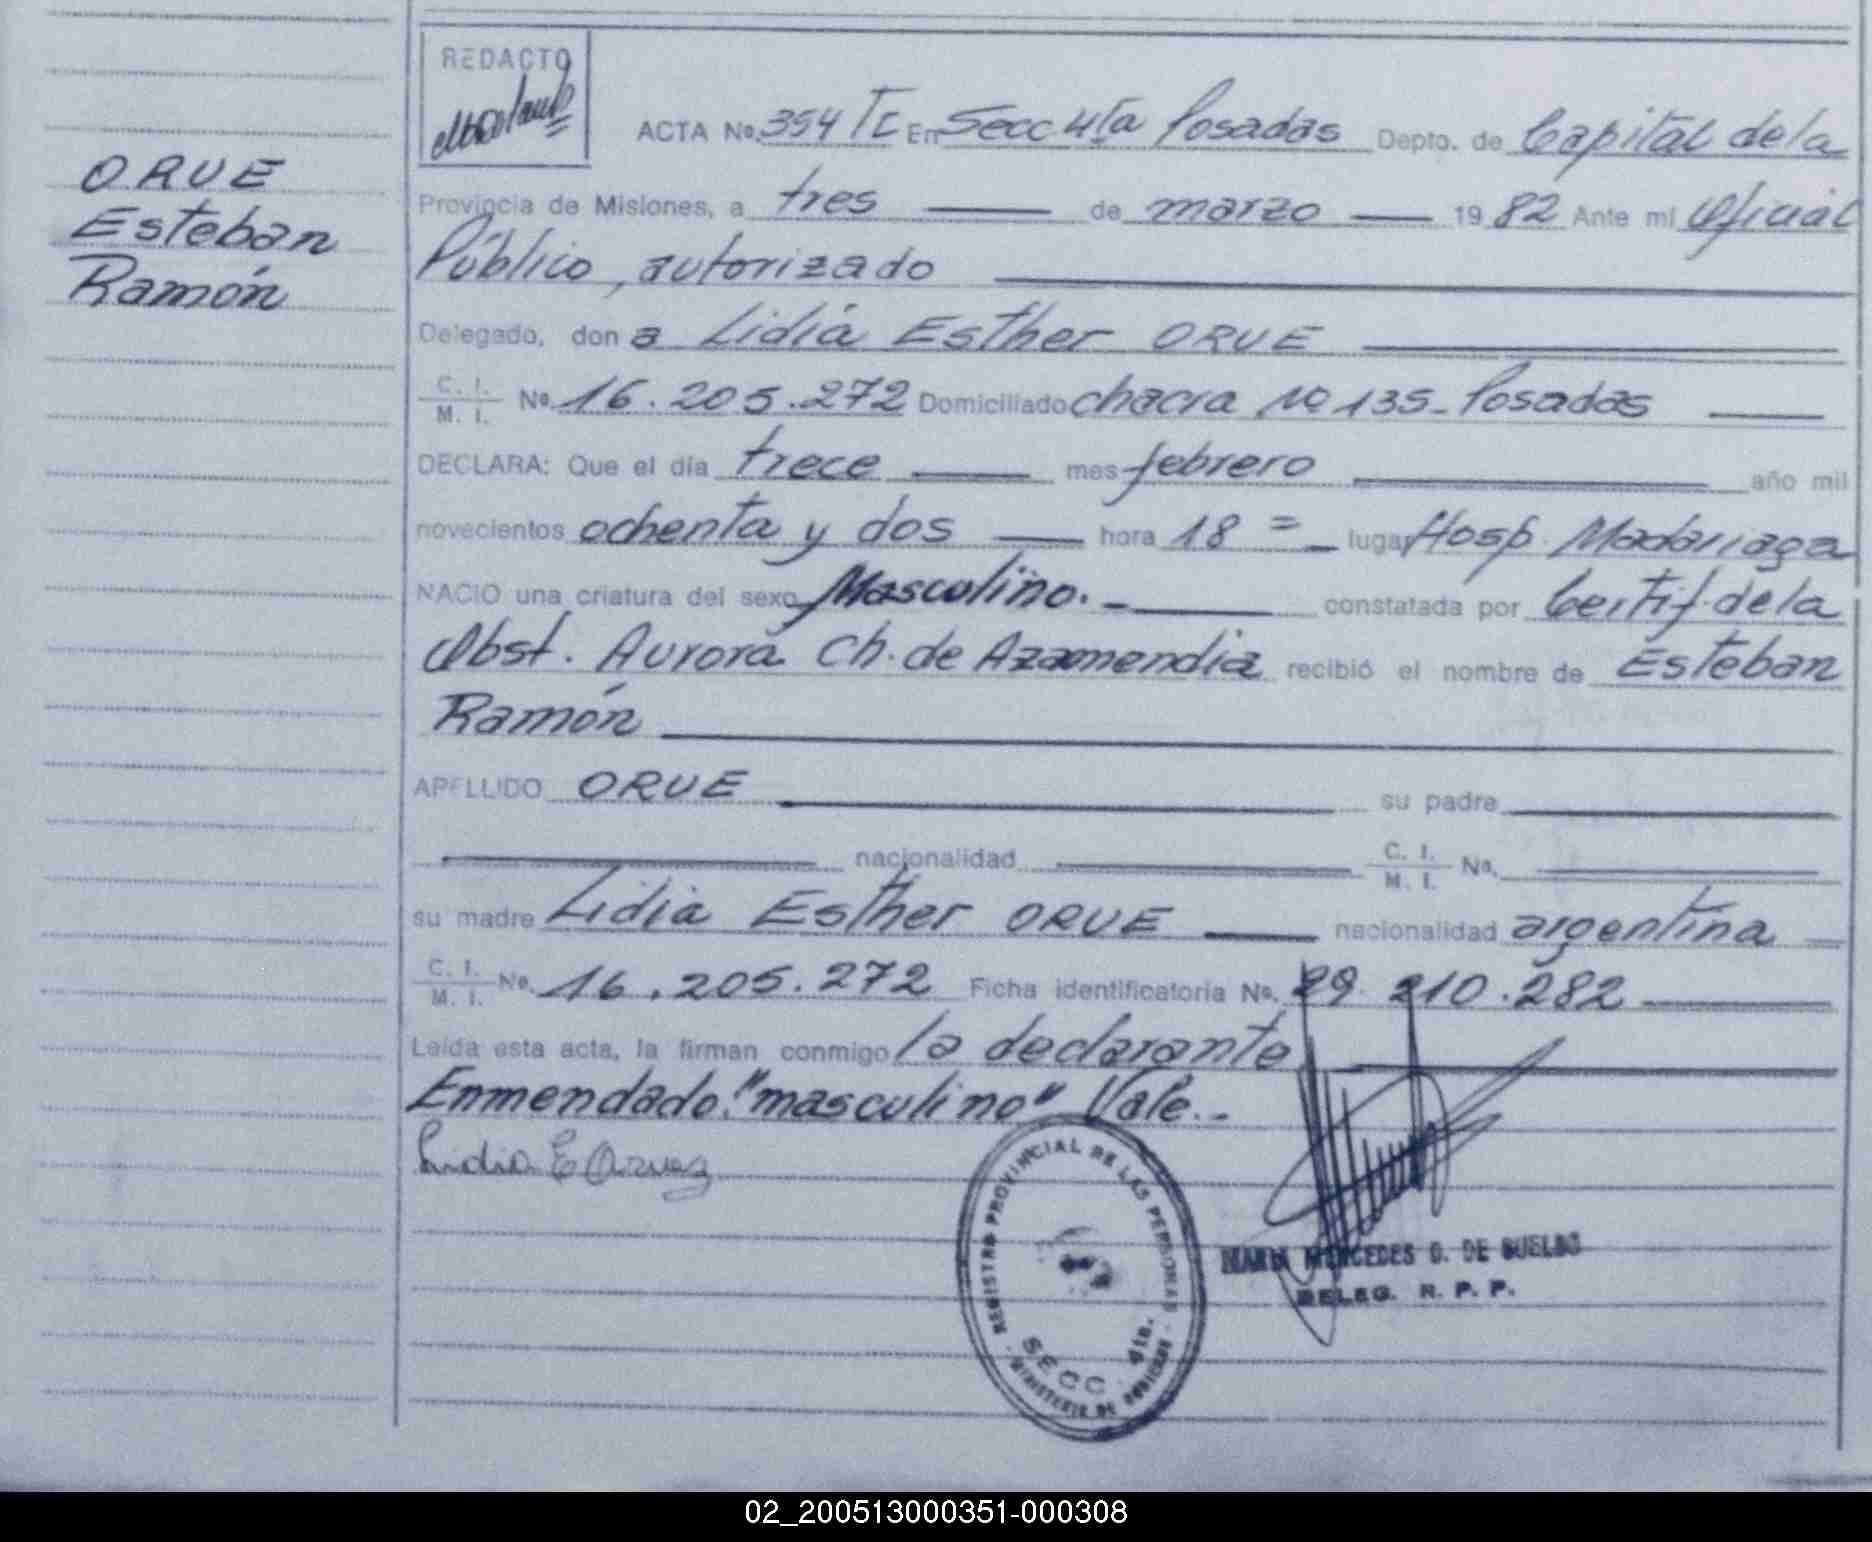 REDACTO
ACTA No. 394 TI En Secc 4ta Posadas Depto. de Capital de la
ORUE
Esteban
Ramón
Provincia de Misiones, a tres de marzo 19 82 Ante mi Oficial
Público, autorizado
Delegado, don a Lidia Esther ORUE
C. I.
M. I. No. 16.205.272 Domiciliado chacra No 135 - Posadas
DECLARA: Que el día trece mes febrero año mil
novecientos ochenta y dos hora 18 = lugar Hosp. Madariaga
NACIO una criatura del sexo Masculino. - constatada por Certif. de la
Obst. Aurora Ch. de Azamendia recibió el nombre de Esteban
Ramón
APELLIDO ORUE su padre
nacionalidad C. I.
M. I. No.
su madre Lidia Esther ORUE nacionalidad argentina
C. I.
M. I. No. 16.205.272 Ficha identificatoria No. 29.210.282
Leída esta acta, la firman conmigo la declarante
Enmendado: "masculino" Vale. -
Lidia E
REGISTRO PROVINCIAL DE LAS PERSONAS
SECC. 4ta.
MINISTERIO DE GOBIERNO
MARIA MERCEDES G. DE SUELDO
DELEG. R. P. P.
02_200513000351-000308